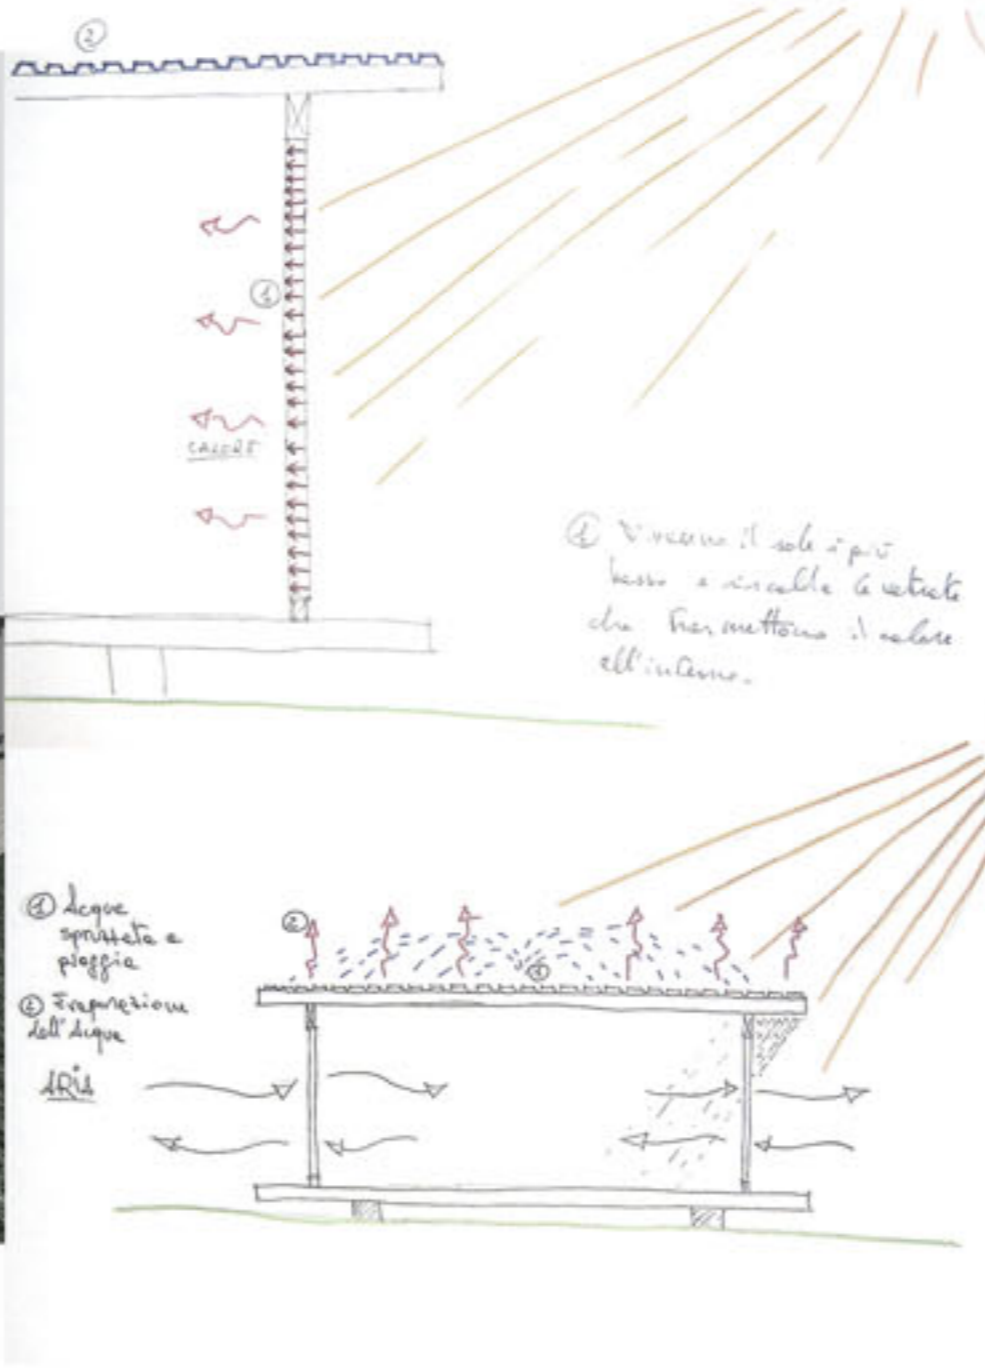 ②
①
CALORE
① D'inverno il sole è più
basso e riscalda le vetrate
che trasmettono il calore
all'interno.
① Acqua
spruzzata e
pioggia
② Evaporazione
dell'Acqua
ARIA
②
①